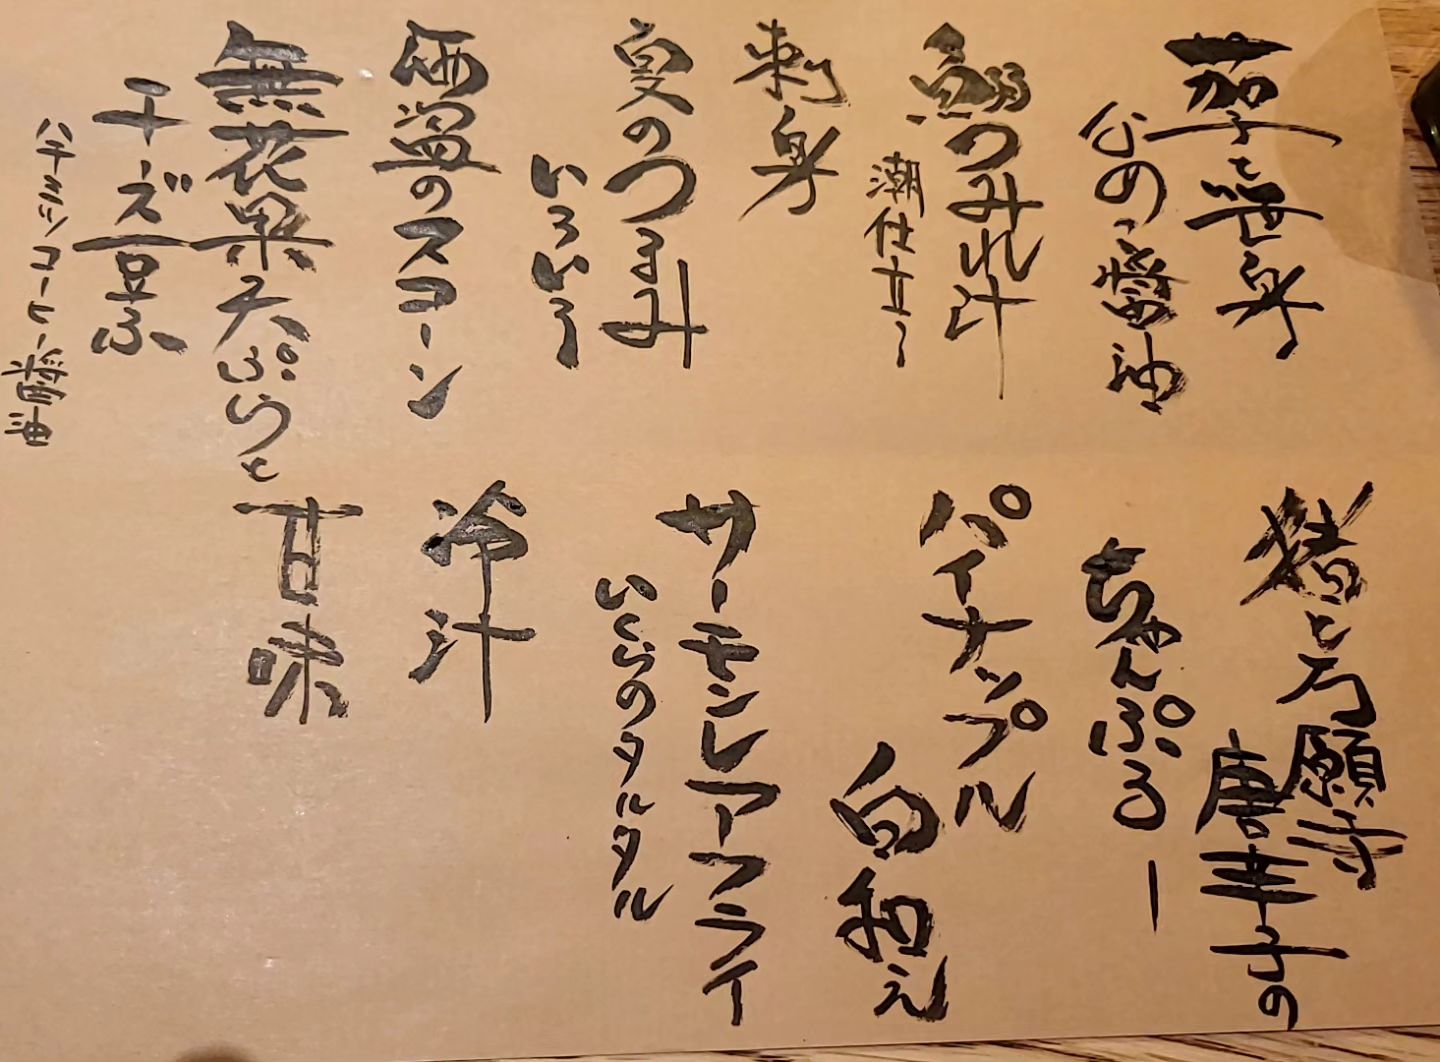 茄子と笹身
なめこ醤油
鰯つみれ汁
潮仕立て
刺身
夏のつまみ
いろいろ
酒盗のスコーン
無花果天ぷらと
チーズ豆ふ
ハチミツコーヒー醤油
猪と万願寺
唐辛子の
ちゃんぷるー
パイナップル
白和え
サーモンレアフライ
いくらのタルタル
冷汁
甘味